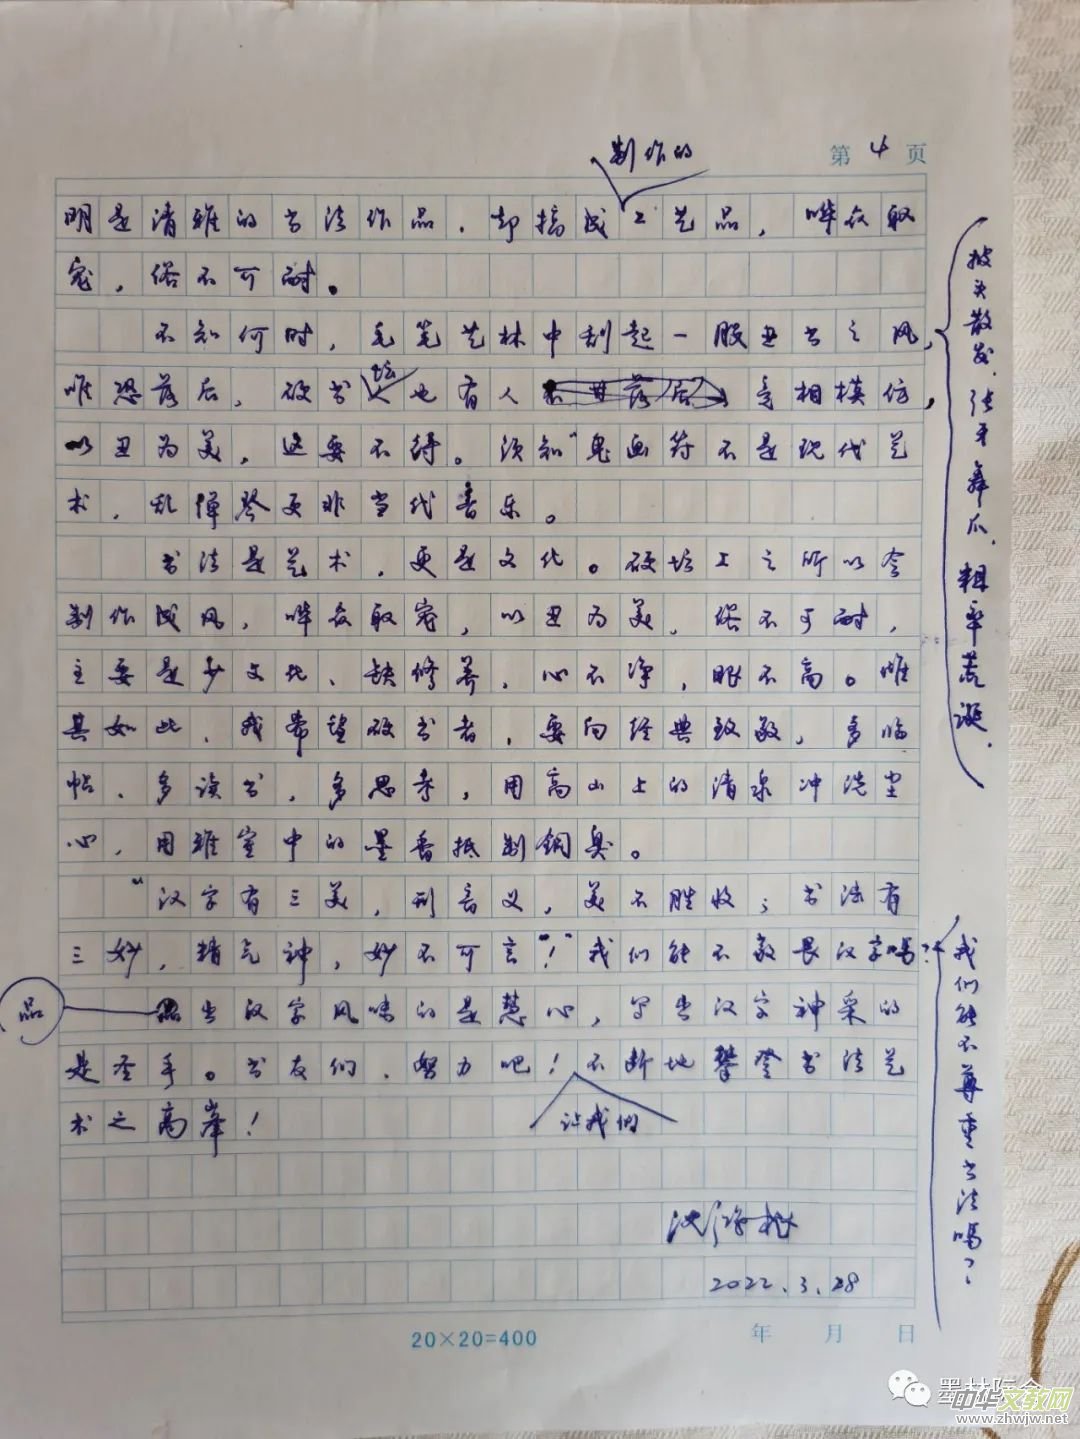 制作的
第 4 页
明是清雅的书法作品，却搞成工艺品，哗众取
宠，俗不可耐。
不知何时，毛笔艺林中刮起一股丑书之风，
披头散发、张牙舞爪、粗率荒诞，
坛
唯恐落后，硬书也有人竞相模仿，
以丑为美，这要不得。须知"鬼画符不是现代艺
术，乱弹琴更非当代音乐。
书法是艺术，更是文化。硬坛上之所以会
制作成风，哗众取宠，以丑为美，俗不可耐，
主要是少文化、缺修养，心不净，眼不高。唯
其如此，我希望硬书者，要向经典致敬，多临
帖、多读书，多思考，用高山上的清泉冲洗尘
心，用雅室中的墨香抵制铜臭。
"汉字有三美，形音义，美不胜收；书法有
三妙，精气神，妙不可言"！我们能不敬畏汉字吗？
我们能不尊重书法吗？
品
出汉字风味的是慧心，写出汉字神采的
是圣手。书友们，努力吧！不断地攀登书法艺
让我们
术之高峰！
2022.3.28
20×20=400
年 月 日
墨林际会
中华文教网
www.zhwjw.net